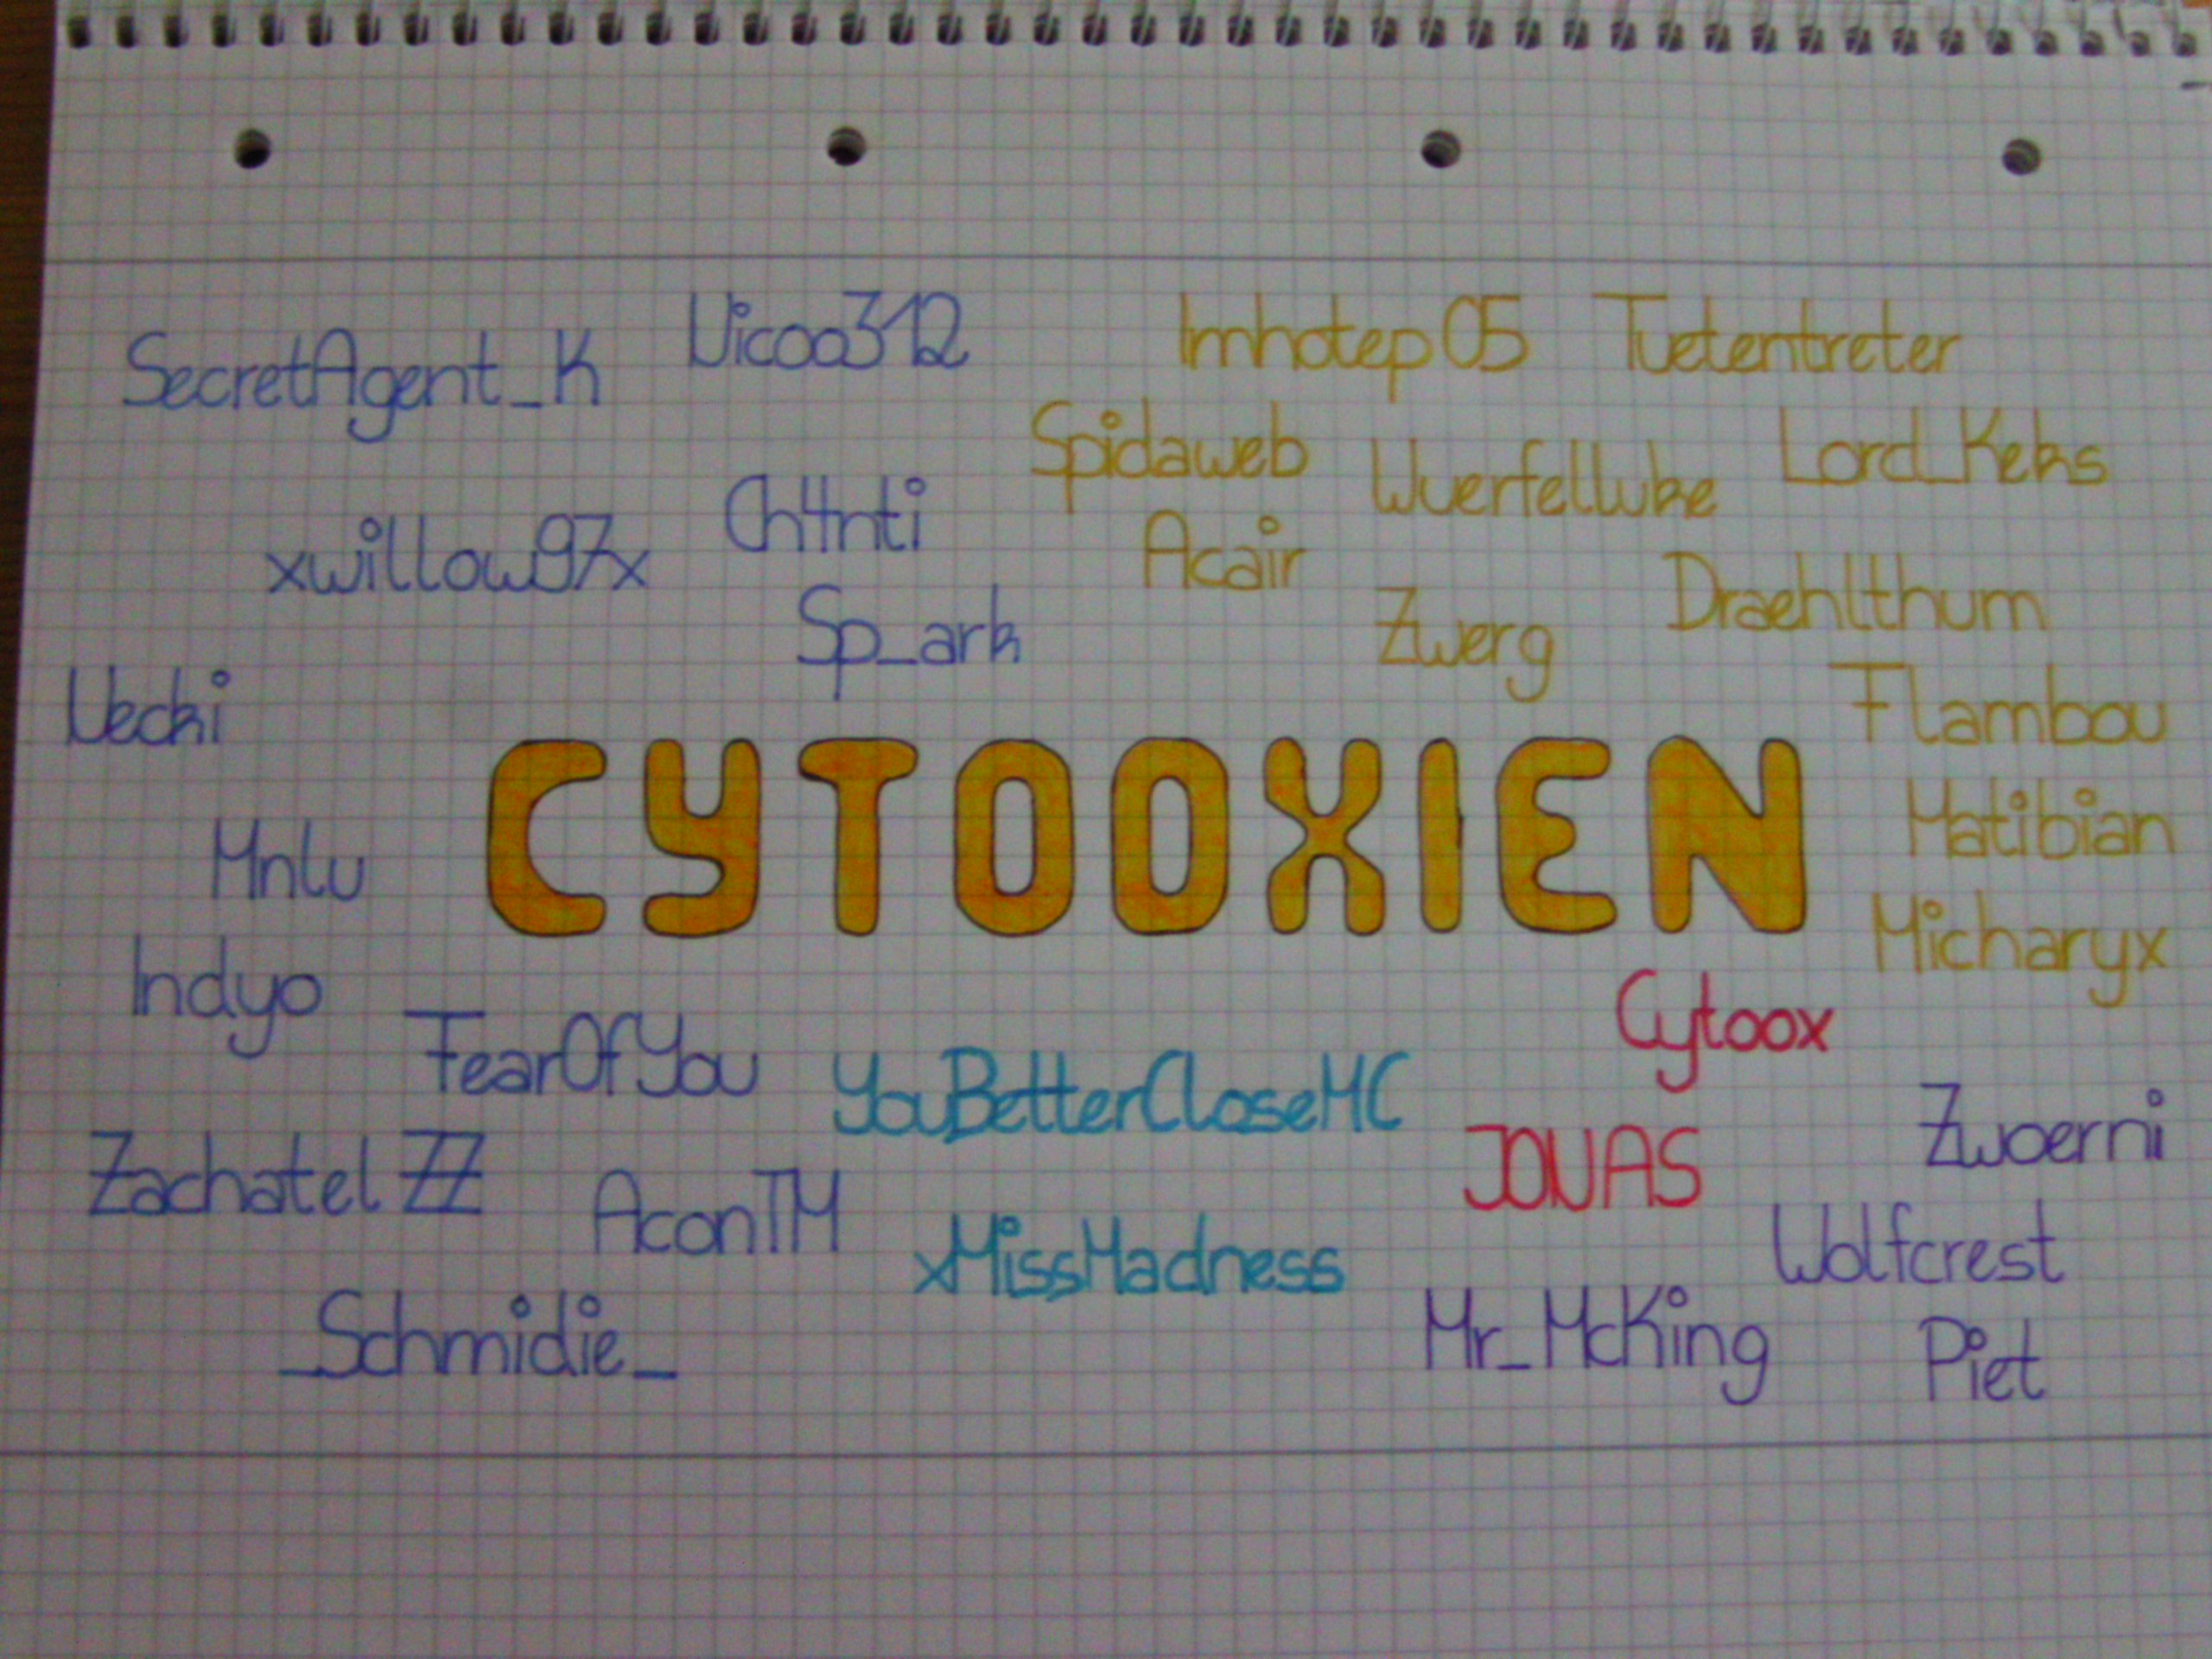 Nicoo312
Imhotep05 Tuetentreter
SecretAgent_K
Spidaweb Wuerfelluke Lord_Keks
xwillow97x Ch4nti Acair
Sp_ark Zwerg Draehlthum
Necki
Flambou
CYTOOXIEN
Mnlu
Matibian
Micharyx
Indyo
Cytoox
FearOfYou
YouBetterCloseMC
Zwoerni
ZachatelZZ
JONAS
AconTM
xMissMadness
Wolfcrest
_Schmidie_
Mr_McKing
Piet